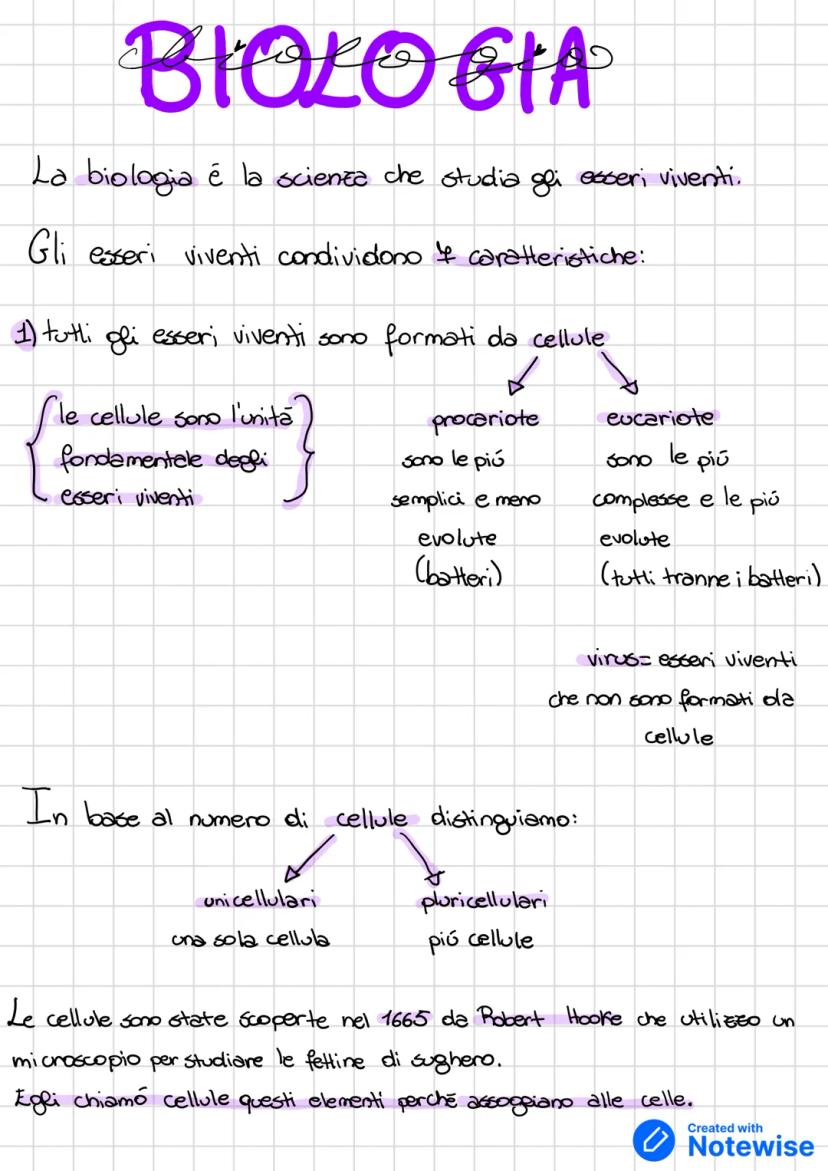 BIOLOGIA
biologia
La biologia é la scienza che studia gli esseri viventi.
Gli esseri viventi condividono 7 caratteristiche:
1) tutti gli esseri viventi sono formati da cellule
{ le cellule sono l'unità
fondamentale degli
esseri viventi }
procariote
sono le piú
semplici e meno
evolute
(batteri)
eucariote
sono le piú
complesse e le piú
evolute
(tutti tranne i batteri)
virus= esseri viventi
che non sono formati da
cellule
In base al numero di cellule distinguiamo:
unicellulari
una sola cellula
pluricellulari
piú cellule
Le cellule sono state scoperte nel 1665 da Robert Hooke che utilizzo un
microscopio per studiare le fettine di sughero.
Egli chiamó cellule questi elementi perché assoggiano alle celle.
Created with
Notewise